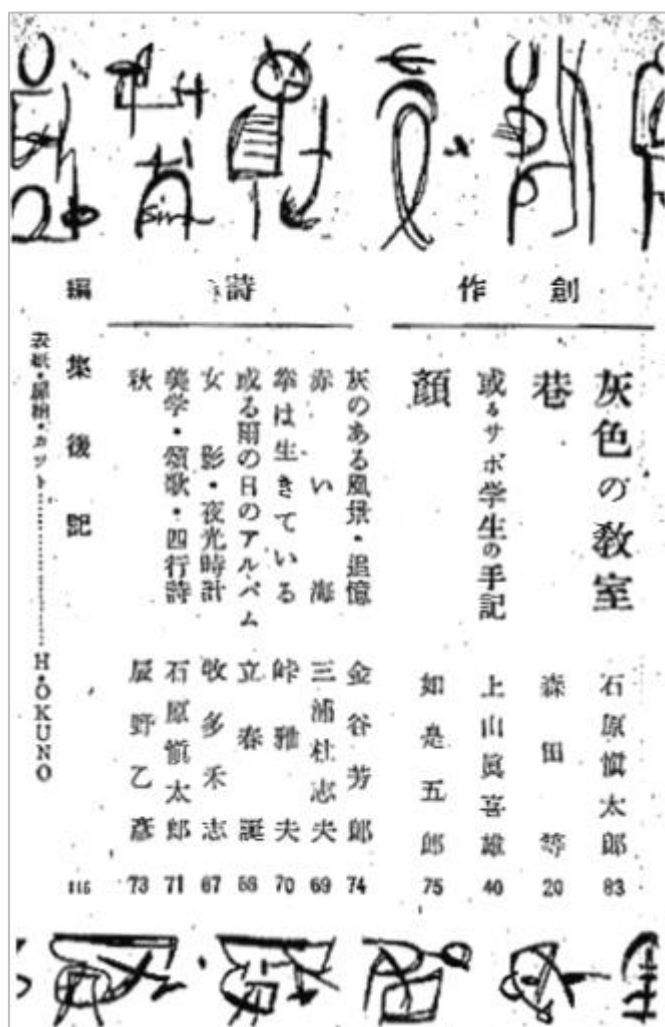 創作
灰色の教室 石原慎太郎 83
巷 森田等 20
或るサボ学生の手記 上山眞喜雄 40
顔 如是五郎 75
詩
灰のある風景・追憶 金谷芳郎 74
赤い海 三浦杜志夫 69
拳は生きている 峠雅夫 70
或る雨の日のアルバム 立春誕 68
女影・夜光時計 牧多禾志 67
美学・頌歌・四行詩 石原愼太郎 71
秋 辰野乙彦 73
編集後記 116
表紙・扉絵・カット……………………H・OKUNO